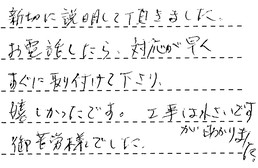 新切に説明して頂きました。
お電話したら、対応が早く
すぐに取り付けて下さり、
嬉しかったです。工事は小さいです
がわかります
御苦労様でした。